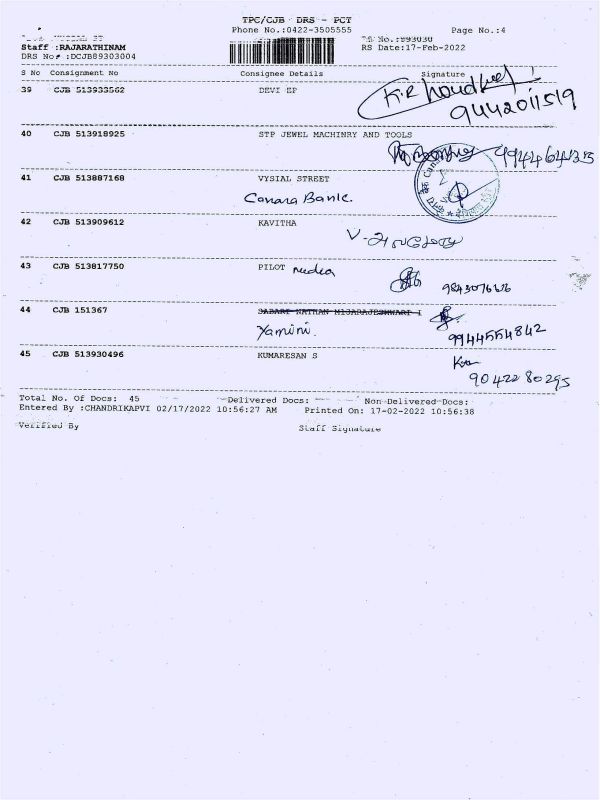 TPC/CJB DRS - PCT
Phone No.:0422-3505555 Page No.:4
RS No.:893030
Staff :RAJARATHINAM RS Date:17-Feb-2022
DRS No# :DCJB89303004
S No Consignment No Consignee Details Signature
39 CJB 513933562 DEVI EF
9442011519
40 CJB 513918925 STP JEWEL MACHINRY AND TOOLS
41 CJB 513887168 VYSIAL STREET
Canara Bank.
42 CJB 513909612 KAVITHA
43 CJB 513817750 PILOT media
44 CJB 151367
Yamini. 9944554842
45 CJB 513930496 KUMARESAN S
9042280295
Total No. Of Docs: 45 Delivered Docs: Non-Delivered Docs:
Entered By :CHANDRIKAPVI 02/17/2022 10:56:27 AM Printed On: 17-02-2022 10:56:38
Verified By Staff Signature